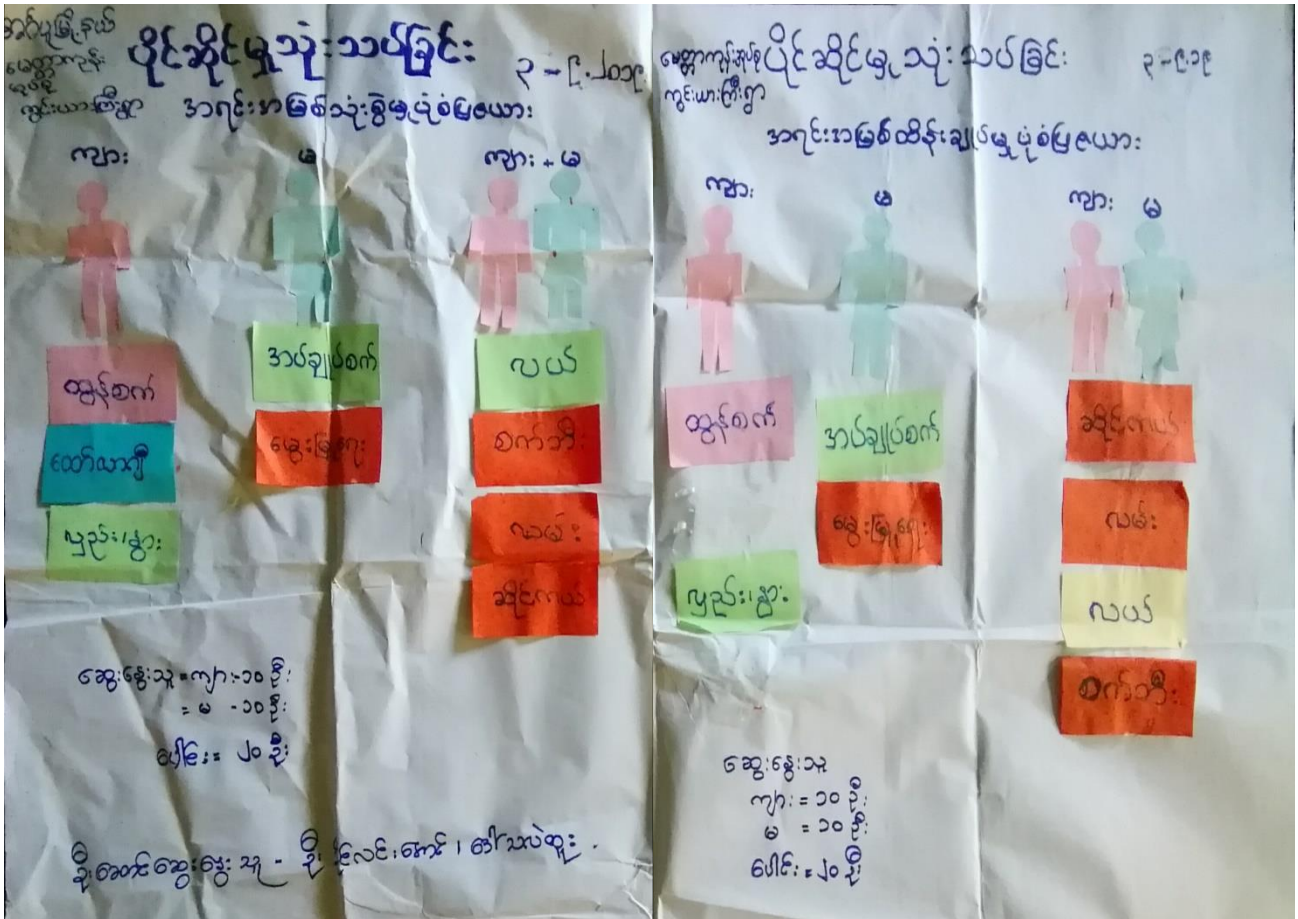 အင်္ဂပူမြို့နယ်
မေတ္တာကုန်းအုပ်စု
ကွင်းယားကြီးရွာ
ပိုင်ဆိုင်မှုသုံးသပ်ခြင်း
၃-၉-၂၀၁၉
အရင်းအမြစ်သုံးစွဲမှုပုံစံပြဇယား
ကျား
မ
ကျား + မ
ထွန်စက်
ထော်လာဂျီ
လှည်း၊နွား
အပ်ချုပ်စက်
မွေးမြူရေး
လယ်
စက်ဘီး
လမ်း
ဆိုင်ကယ်
ဆွေးနွေးသူ = ကျား-၁၀ ဦး
= မ -၁၀ ဦး
ပေါင်း = ၂၀ ဦး
ဦးဆောင်ဆွေးနွေးသူ -
မေတ္တာကုန်းအုပ်စု
ကွင်းယားကြီးရွာ
ပိုင်ဆိုင်မှု သုံးသပ်ခြင်း
၃-၉-၁၉
အရင်းအမြစ်ထိန်းချုပ်မှုပုံစံပြဇယား
ကျား
မ
ကျား မ
ထွန်စက်
လှည်း၊နွား
အပ်ချုပ်စက်
မွေးမြူရေး
ဆိုင်ကယ်
လမ်း
လယ်
စက်ဘီး
ဆွေးနွေးသူ
ကျား = ၁၀ ဦး
မ = ၁၀ ဦး
ပေါင်း = ၂၀ ဦး